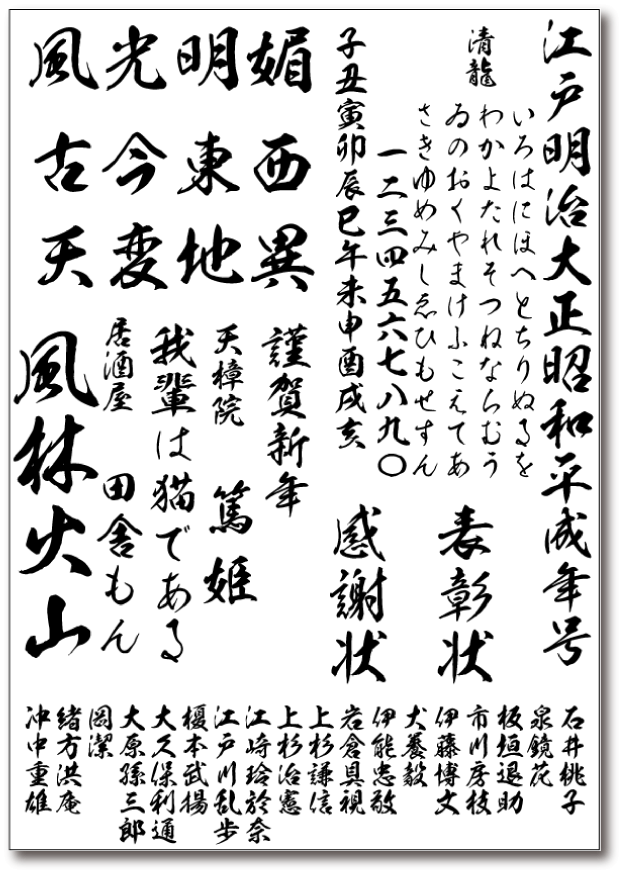 江戸明治大正昭和平成年号
清龍
いろはにほへとちりぬるを
わかよたれそつねならむう
ゐのおくやまけふこえてあ
さきゆめみしゑひもせすん
一二三四五六七八九〇
子丑寅卯辰巳午未申酉戌亥
表彰状
感謝状
媚明光風
西東今古
異地変天
謹賀新年
天樟院
篤姫
我輩は猫である
居酒屋
田舎もん
風林火山
石井桃子
泉鏡花
板垣退助
市川房枝
伊藤博文
犬養毅
伊能忠敬
岩倉具視
上杉謙信
上杉治憲
江崎玲於奈
江戸川乱歩
榎本武揚
大久保利通
大原孫三郎
岡潔
緒方洪庵
沖中重雄